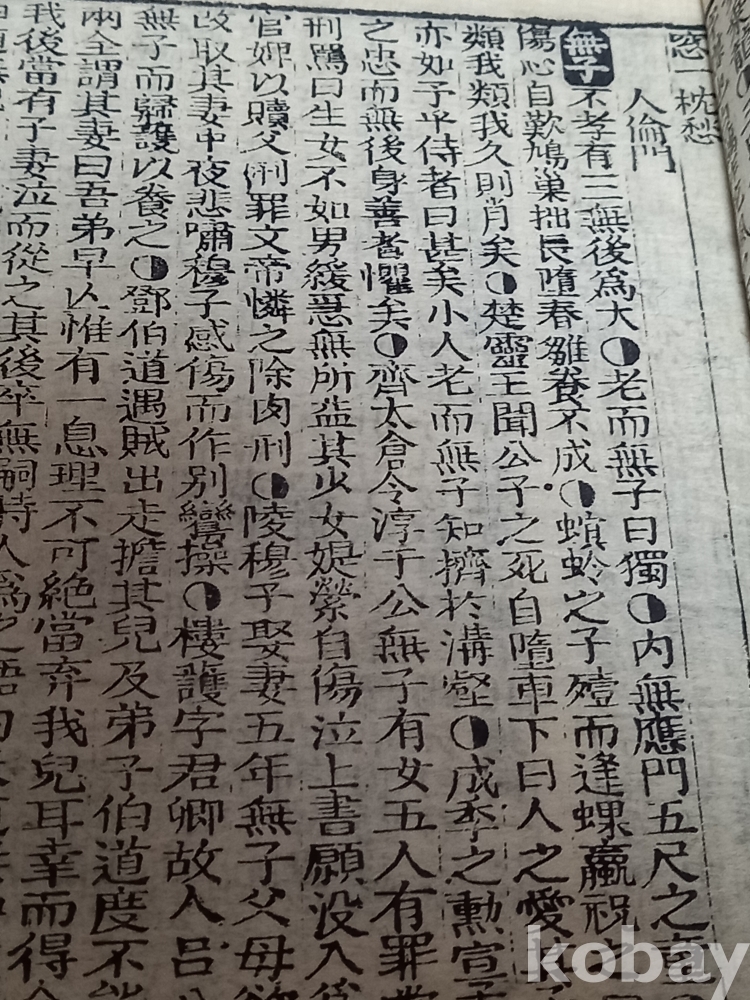 窓一枕愁
人倫門
無子 不孝有三無後爲大◑老而無子曰獨◑内無應門五尺之
傷心自歎鳩巢拙長墮春雛養不成◑螟蛉之子殪而逢蜾蠃祝之
類我類我久則肖矣◑楚靈王聞公子之死自墮車下曰人之愛
亦如予乎侍者曰甚矣小人老而無子知擠於溝壑◑成季之勲宣
之忠而無後爲善者懼矣◑齊太倉令淳于公無子有女五人有罪當
刑罵曰生女不如男緩急無所益其少女媞縈自傷泣上書願没入爲
官婢以贖父刑罪文帝憐之除肉刑◑陵穆子娶妻五年無子父母欲
改取其妻中夜悲嘯穆子感傷而作別鸞操◑樓護字君卿故人呂
無子而歸護以養之◑鄧伯道遇賊出走擔其兒及弟子伯道度不能
兩全謂其妻曰吾弟早亡惟有一息理不可絶當弃我兒耳幸而得
我後當有子妻泣而從之其後卒無嗣時人爲之語曰